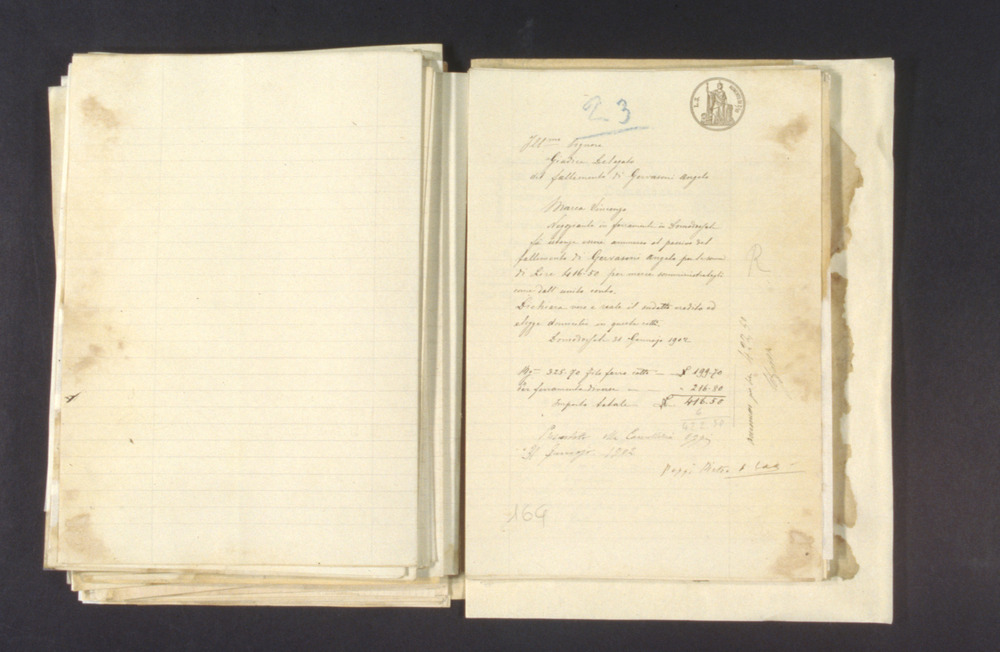 23
Ill.mo Signore
Giudice Delegato
del fallimento di Gervasoni Angelo
Marca Vincenzo
Negoziante in ferramenti in Domodossola
fa istanza essere ammesso al passivo del
fallimento di Gervasoni Angelo per la somma
di Lire 416.50 per merce somministrategli
come dall'unito conto.
Dichiara vero e reale il suddetto credito ed
elegge domicilio in questa città.
Domodossola 31 Gennajo 1902
325.70 filo ferro cotto £ 199.70
Per ferramenta diverse - 216.80
Importo totale £ 416.50
4
422.50
Presentato alla Cancelleria oggi
31 Gennajo 1902
164
R